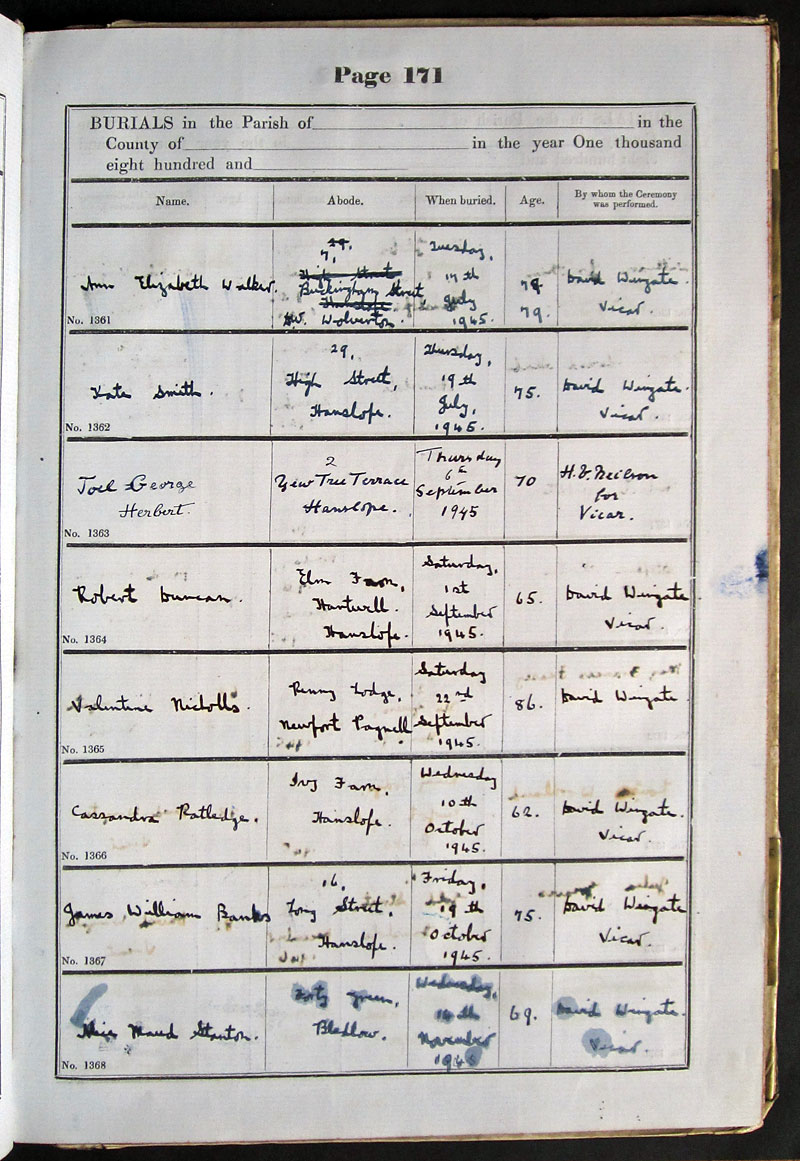 Page 171
BURIALS in the Parish of in the
County of in the year One thousand
eight hundred and
Name. Abode. When buried. Age. By whom the Ceremony was performed.
29,
7,
High Street
Buckingham Street
Hanslope
Wolverton.
Ann Elizabeth Walker.
Tuesday,
17th
July
1945.
79
79.
David Wingate.
Vicar.
No. 1361
Kate Smith.
29,
High Street,
Hanslope.
Thursday,
19th
July,
1945.
75.
David Wingate.
Vicar.
No. 1362
Joel George
Herbert.
2
Yew Tree Terrace
Hanslope.
Thursday
6th
September
1945
70
Neilson
for
Vicar.
No. 1363
Robert Duncan.
Elm Farm,
Hartwell.
Hanslope.
Saturday,
1st
September
1945.
65.
David Wingate
Vicar.
No. 1364
Valentine Nicholls.
Lodge,
Newfort Pagnell
Saturday
22nd
September
1945.
86.
David Wingate
No. 1365
Cassandra Ratledge.
Ivy Farm,
Hanslope.
Wednesday
10th
October
1945.
62.
David Wingate.
Vicar.
No. 1366
James William Banks
16,
Long Street,
Hanslope.
Friday,
19th
October
1945.
75.
David Wingate
Vicar.
No. 1367
Maud Stanton.
Forty Green,
Bledlow.
Wednesday,
14th
November
194
69.
David Wingate.
Vicar.
No. 1368